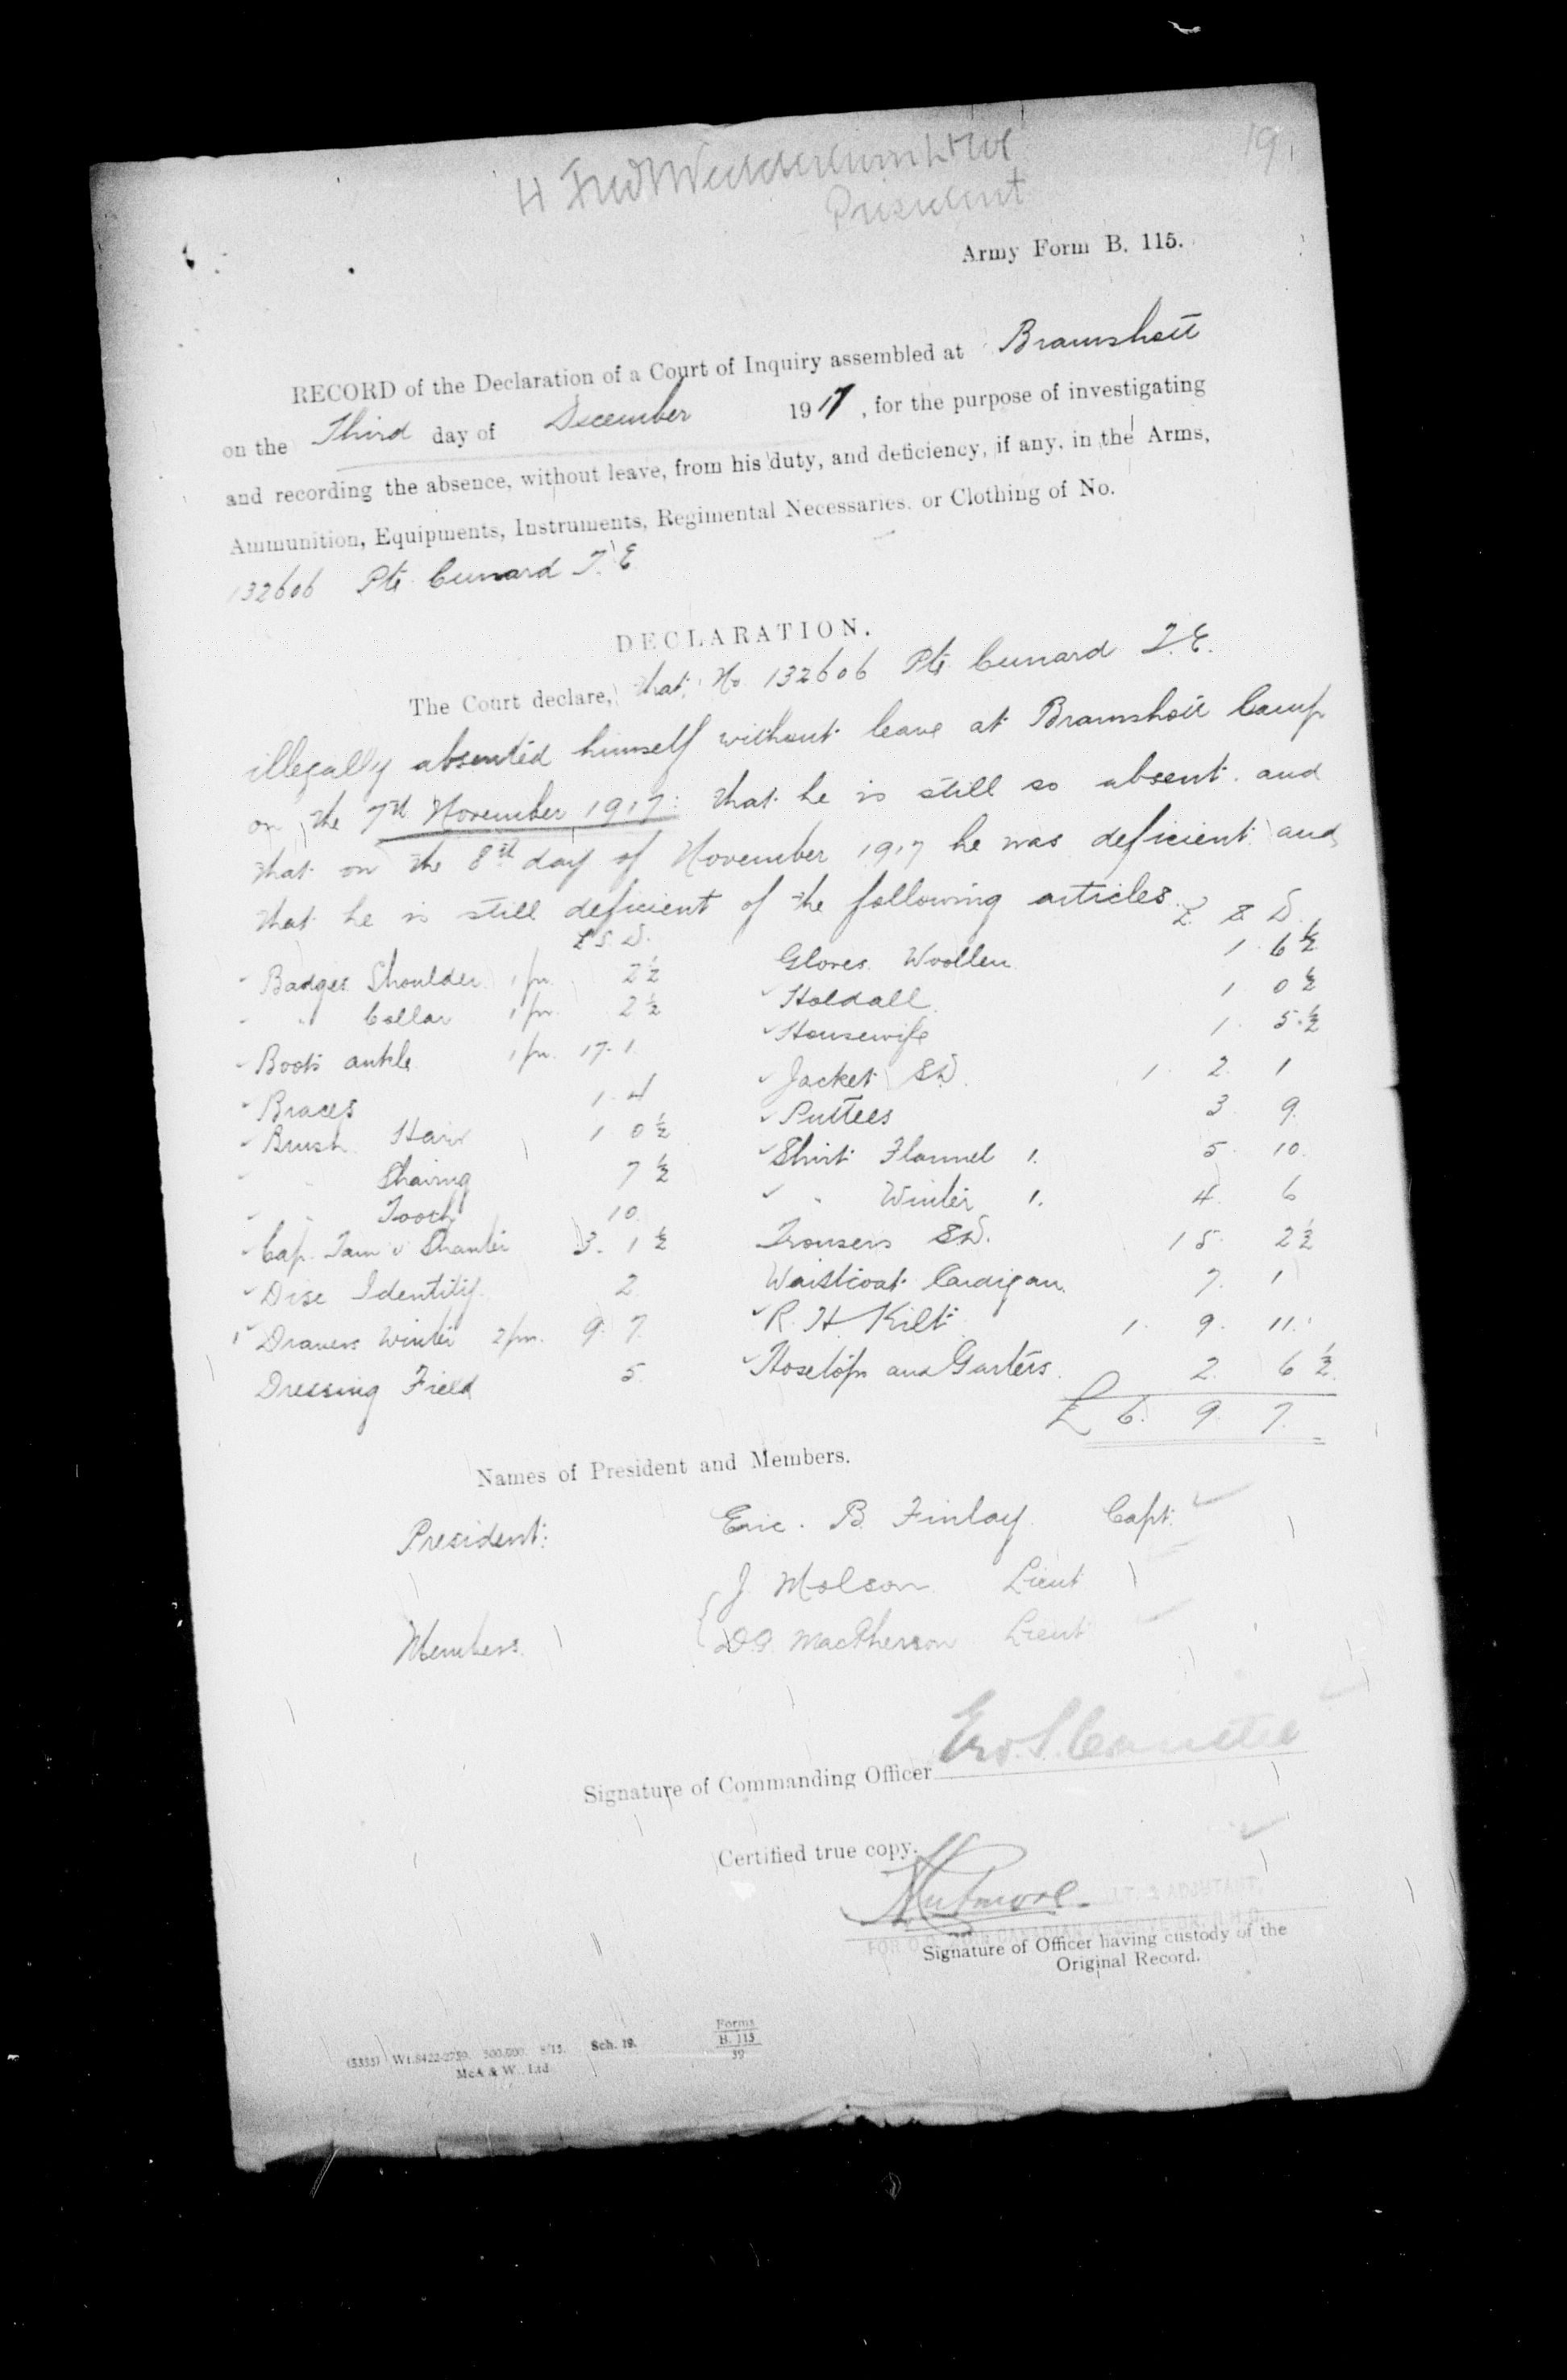 19
President
Army Form B. 115.
RECORD of the Declaration of a Court of Inquiry assembled at Bramshott
on the Third day of December 1917, for the purpose of investigating
and recording the absence, without leave, from his duty, and deficiency, if any, in the Arms,
Ammunition, Equipments, Instruments, Regimental Necessaries, or Clothing of No.
132606 Pte Cunard T. E
DECLARATION.
The Court declare, that No 132606 Pte Cunard T. E.
illegally absented himself without leave at Bramshott Camp
on the 7th November 1917: that he is still so absent and
that on the 8th day of November 1917 he was deficient and
that he is still deficient of the following articles.
£ S. D.
£ S D
Badges Shoulder 1 pr. 2½
Gloves Woollen 1 6½
" Collar 1 pr. 2½
Holdall 1 0½
Boots ankle 1 pr. 17. 1
Housewife 1. 5½
Braces 1. 4
Jacket S.D. 1. 2. 1
Brush Hair 1 0½
Puttees 3 9
" Shaving 7½
Shirt Flannel 1. 5 10
" Tooth 10
" Winter 1. 4. 6
Cap Tam o Shanter 3. 1½
Trousers S.D. 15. 2½
Disc Identity 2
Waistcoat Cardigan 7. 1
Drawers Winter 2 prs. 9. 7
R. H. Kilt 1. 9. 11.
Dressing Field 5
Hosetops and Garters 2. 6½
£ 6. 9. 7.
Names of President and Members.
President: Eric. B. Finlay Capt.
J Molson Lieut
Members D.G. MacPherson Lieut
Signature of Commanding Officer
Certified true copy.
LT. & ADJUTANT,
Signature of Officer having custody of the
Original Record.
(3333) Wt.8422-2759. 500,000. 8/15. Sch. 19.
McA & W., Ltd.
Forms
B. 115
39